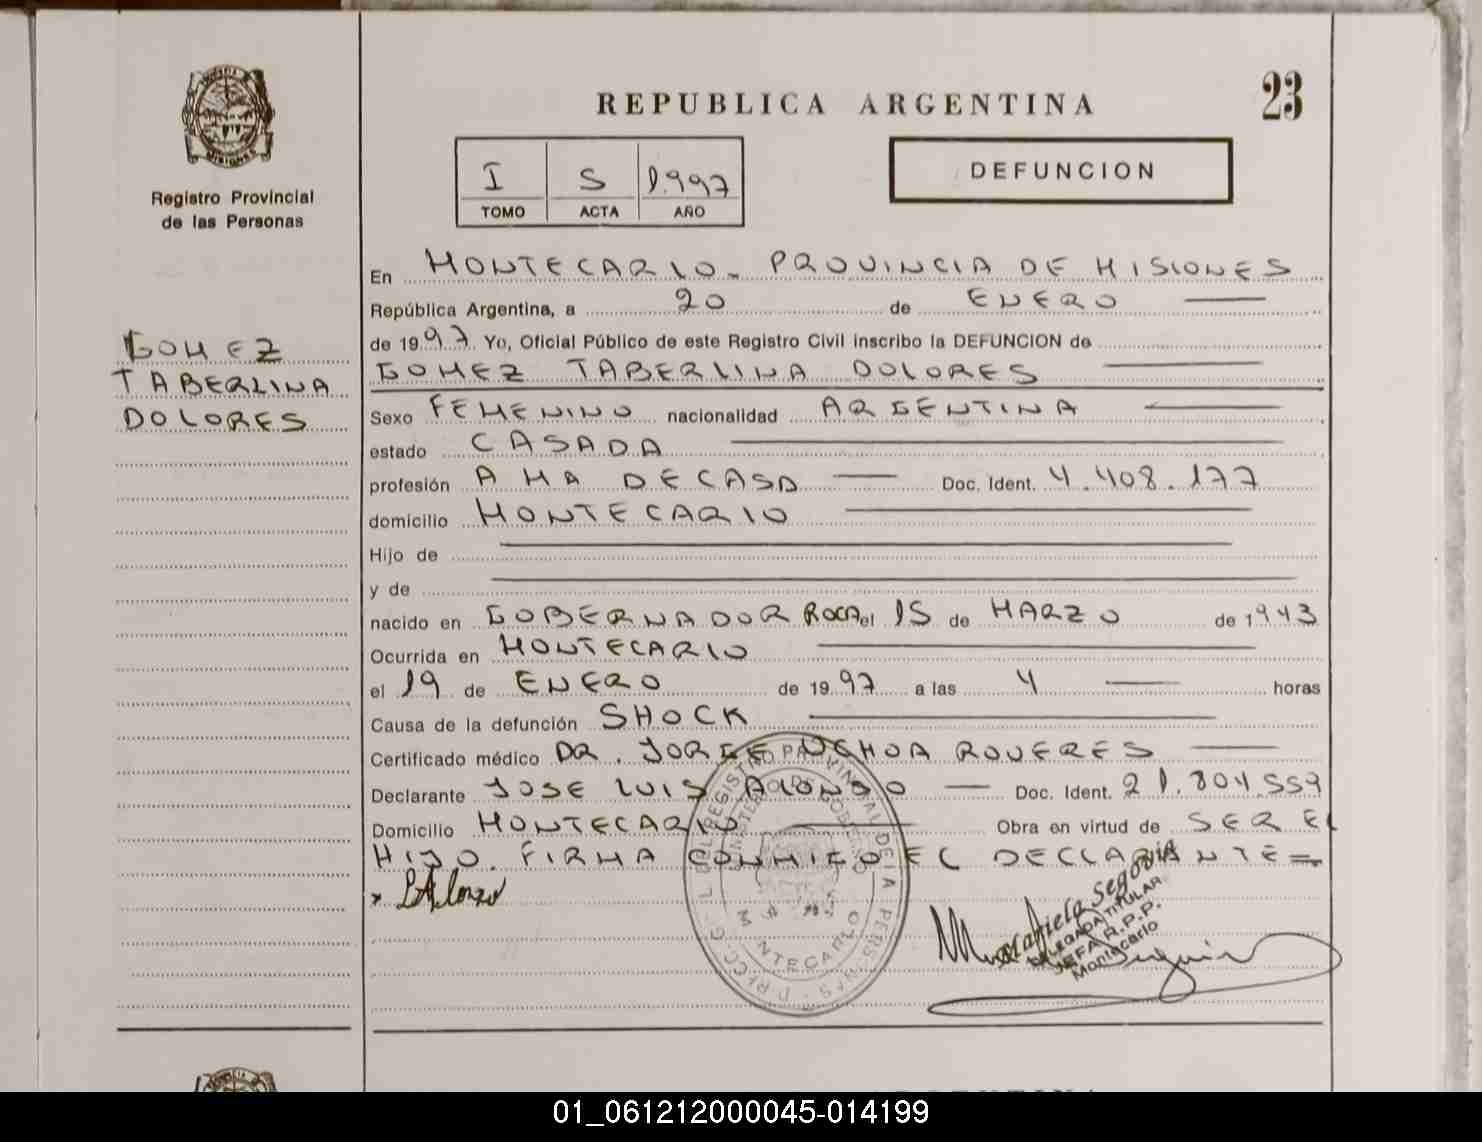 REPUBLICA ARGENTINA
23
I S 1.997
TOMO ACTA AÑO
DEFUNCION
MISIONES
Registro Provincial
de las Personas
GOMEZ
TABERLINA
DOLORES
En MONTECARLO. PROVINCIA DE MISIONES
República Argentina, a 20 de ENERO
de 1997 Yo, Oficial Público de este Registro Civil inscribo la DEFUNCION de
GOMEZ TABERLINA DOLORES
Sexo FEMENINO nacionalidad ARGENTINA
estado CASADA
profesión AMA DE CASA Doc. Ident. 4.408.177
domicilio MONTECARLO
Hijo de
y de
nacido en GOBERNADOR ROCA el 15 de MARZO de 1943
Ocurrida en MONTECARLO
el 19 de ENERO de 1997 a las 4 horas
Causa de la defunción SHOCK
Certificado médico DR. JORGE UCHOA ROVERES
Declarante JOSE LUIS ALONSO Doc. Ident. 21.804.559
Domicilio MONTECARLO Obra en virtud de SER EL
HIJO. FIRMA CONMIGO EL DECLARANTE=
x L Alonzo
Segovia
DELEGADA TITULAR
JEFA R.P.P.
Montecarlo
MONTECARLO
01_061212000045-014199